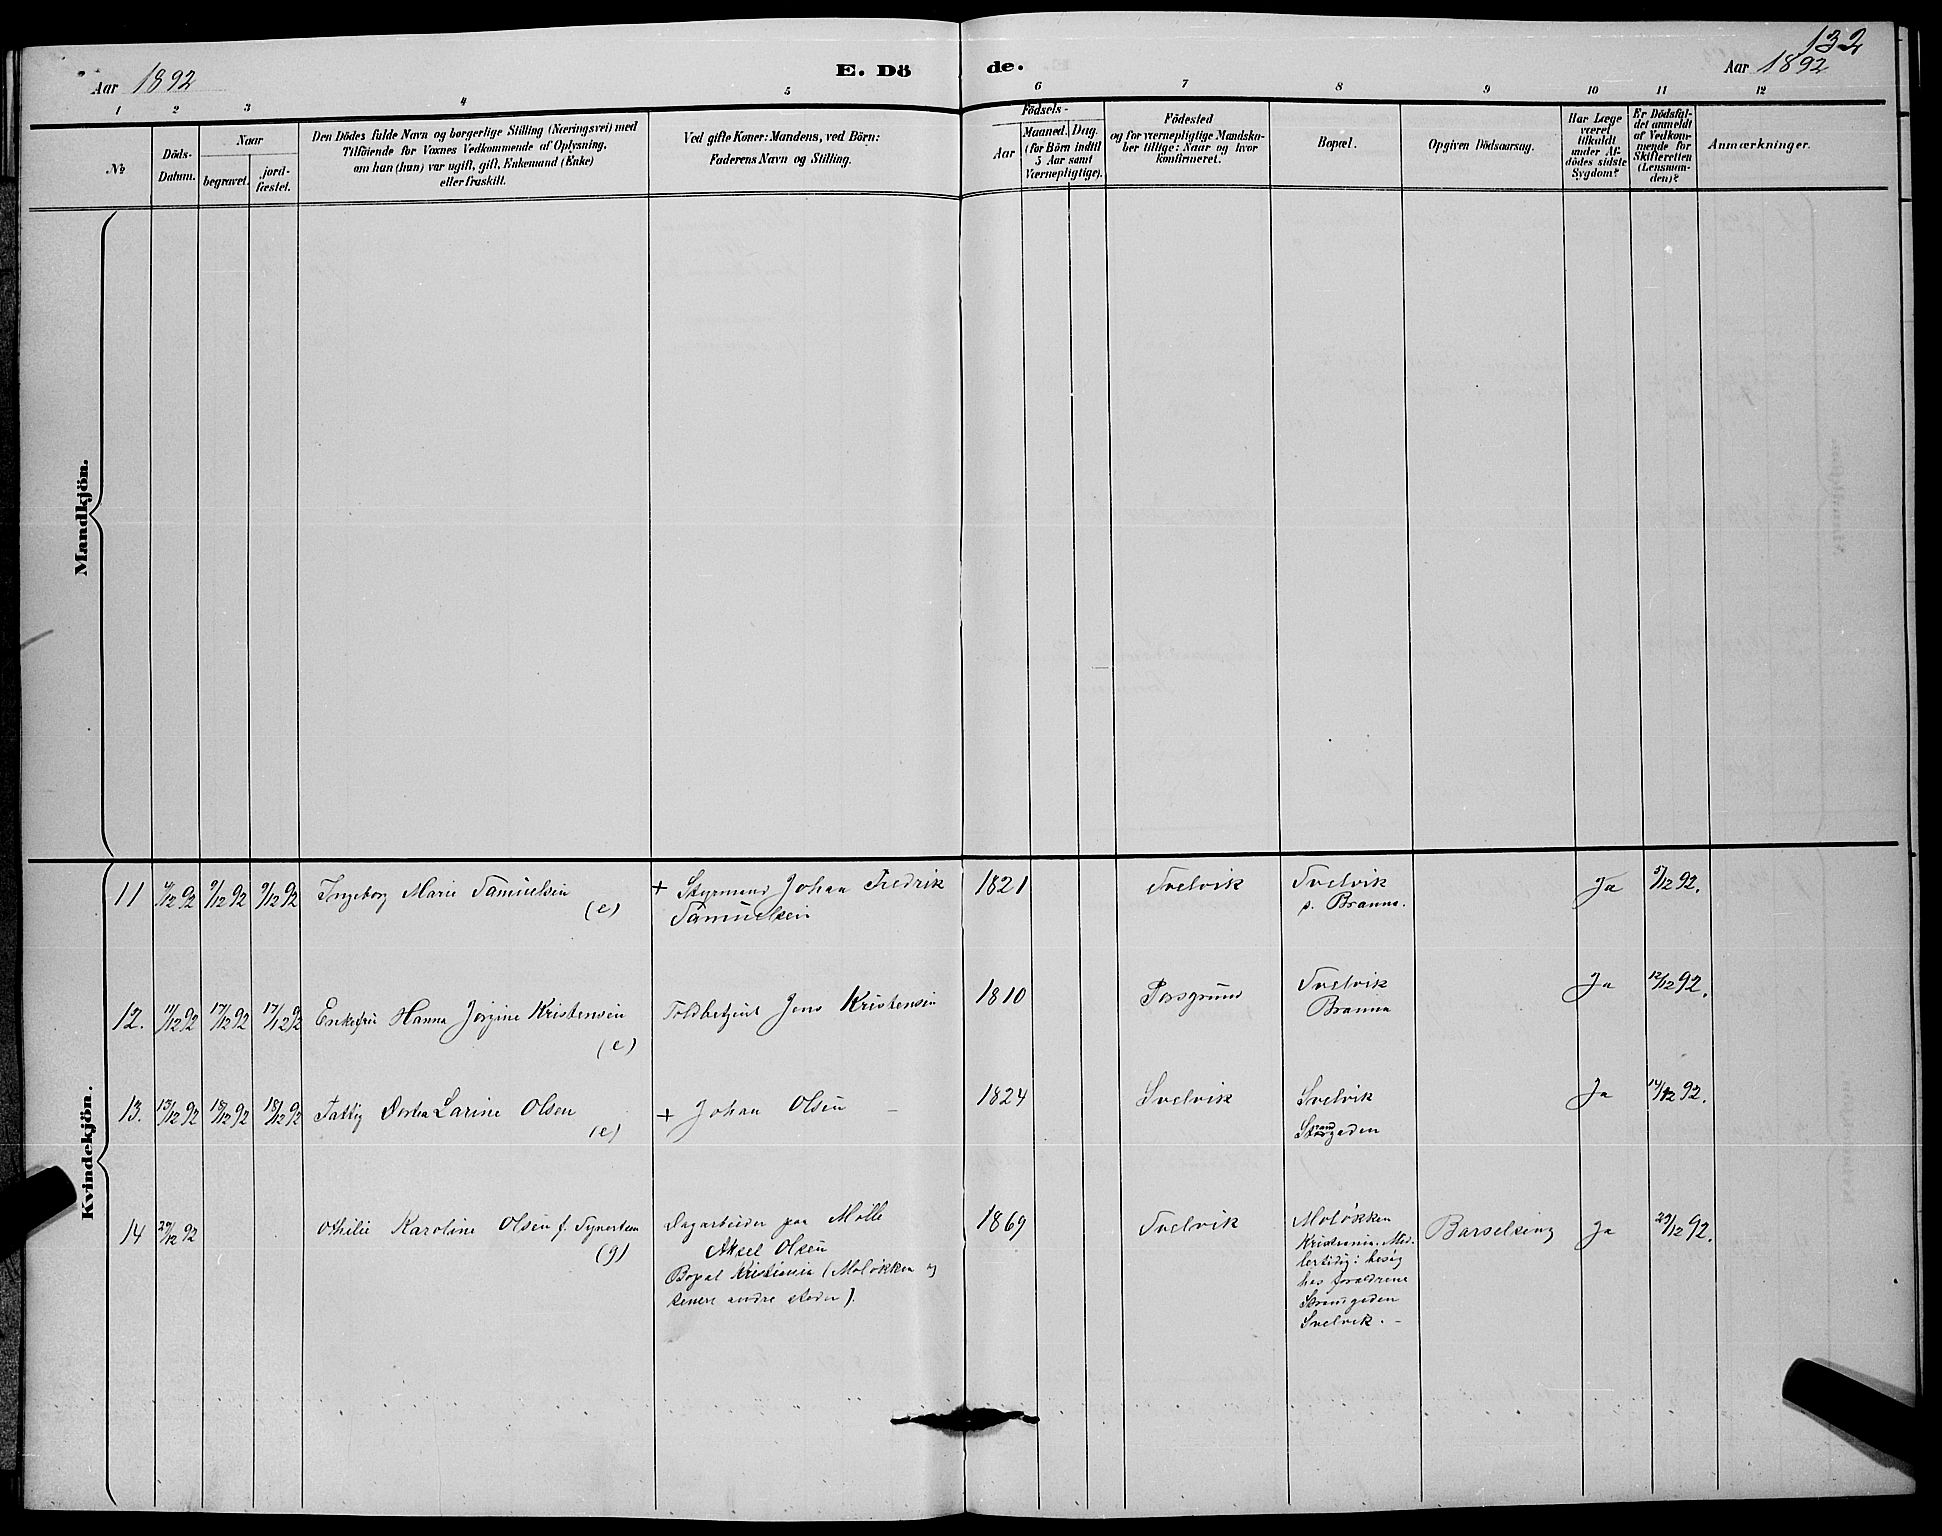 132
Aar 1892
E. Dö
de.
Aar 1892
1 2 3 4 5 6 7 8 9 10 11 12
№
Döds-
Datum.
Naar
begravet.
jord-
fæstet.
Den Dödes fulde Navn og borgerlige Stilling (Næringsvei) med
Tilföiende for Voxnes Vedkommende af Oplysning,
om han (hun) var ugift, gift, Enkemand (Enke)
eller fraskilt.
Ved gifte Koner: Mandens, ved Börn:
Faderens Navn og Stilling.
Födsels-
Aar
Maaned. Dag.
(for Börn indtil
5 Aar samt
Værnepligtige).
Födested
og for værnepligtige Mandska-
ber tillige: Naar og hvor
konfirmeret.
Bopæl.
Opgiven Dödsaarsag.
Har Læge
været
tilkaldt
under Af-
dödes sidste
Sygdom?
Er Dödsfal-
det anmeldt
af Vedkom-
mende for
Skifteretten
(Lensman-
den)?
Anmærkninger.
Mandkjön.
Kvindekjön.
11 4/12 92 9/12 92 9/12 92 Ingeborg Marie Samuelsen
(e)
+ Styrmand Johan Fredrik
Samuelsen
1821 Svelvik
Svelvik
s. Branna.
Ja 5/12 92.
12. 11/12 92 17/12 92 17/12 92 Enkefru Hanna Jørgine Kristensen
(e)
Toldbetjent Jens Kristensen
1810 Porsgrund
Svelvik
Branna
Ja 12/12 92.
13. 13/12 92 18/12 92 18/12 92 Fattig Dortea Larine Olsen
(e)
+ Johan Olsen –
1824 Svelvik
Svelvik
Strandgaden
Ja 14/12 92.
14 29/12 92 Othilie Karoline Olsen f. Syvertsen
(g)
Dagarbeider paa Mølle
Aksel Olsen
Bopæl Kristiania (Moløkken og
senere andre steder).
1869 Svelvik
Moløkken
Kristiania. Mid-
lertidig i besøg
hos forældrene
Strandgaden
Svelvik. –
Barselseng Ja 29/12 92.